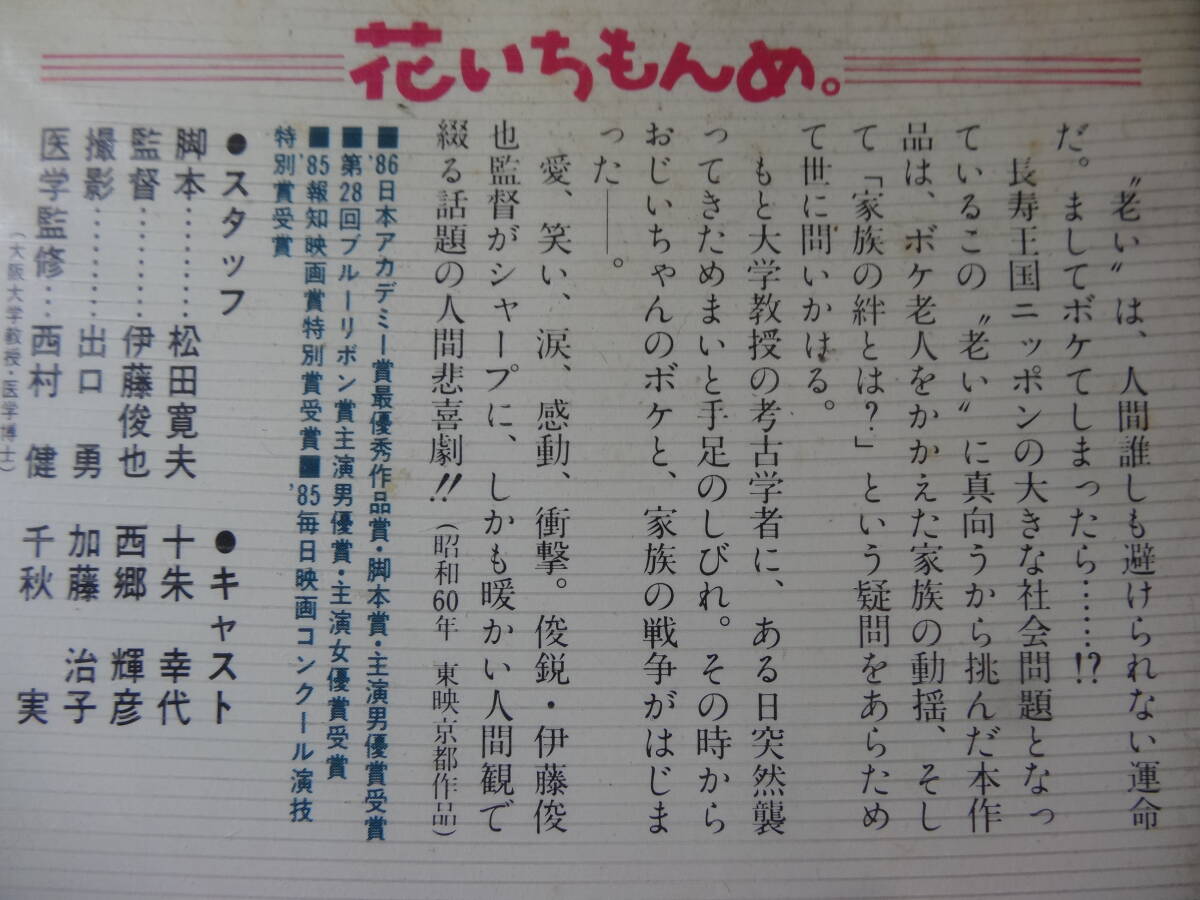 花いちもんめ。
〝老い〟は、人間誰しも避けられない運命
だ。ましてボケてしまったら……!?
長寿王国ニッポンの大きな社会問題となっ
ているこの〝老い〟に真向うから挑んだ本作
品は、ボケ老人をかかえた家族の動揺、そし
て「家族の絆とは?」という疑問をあらため
て世に問いかける。
もと大学教授の考古学者に、ある日突然襲
ってきためまいと手足のしびれ。その時から
おじいちゃんのボケと、家族の戦争がはじま
った――。
愛、笑い、涙、感動、衝撃。俊鋭・伊藤俊
也監督がシャープに、しかも暖かい人間観で
綴る話題の人間悲喜劇!!(昭和60年 東映京都作品)
■'86日本アカデミー賞最優秀作品賞・脚本賞・主演男優賞受賞
■第28回ブルーリボン賞主演男優賞・主演女優賞受賞
■'85報知映画賞特別賞受賞■'85毎日映画コンクール演技
特別賞受賞
●スタッフ
脚本………… 松田寛夫
監督………… 伊藤俊也
撮影………… 出口 勇
医学監修… 西村 健
(大阪大学教授・医学博士)
●キャスト
十朱 幸代
西郷 輝彦
加藤 治子
千秋 実